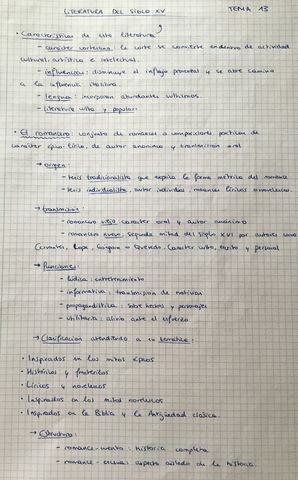 LITERATURA DEL SIGLO XV TEMA 13
• Características de esta literatura
- carácter cortesano: la corte se convierte en centro de actividad
cultural, artística e intelectual.
- influencias: disminuye el influjo provenzal y se abre camino
a la influencia italiana.
- lengua: incorporan abundantes cultismos.
- literatura culta y popular.
• El romancero: conjunto de romances o composiciones poéticas de
carácter épico-lírico, de autor anónimo y transmisión oral
→ origen:
- tesis tradicionalista que explica la forma métrica del romance
- tesis individualista, autor individual, romances líricos o novelescos.
→ transmisión:
- romancero viejo: carácter oral y autor anónimo
- romancero nuevo: segunda mitad del siglo XVI por autores como
Cervantes, Lope, Góngora o Quevedo. Carácter culto, escrito y personal
→ Funciones:
- lúdica: entretenimiento
- informativa: transmisión de noticias
- propagandística: sobre hechos y personajes
- utilitaria: alivio ante el esfuerzo
→ Clasificación atendiendo a su temática:
• Inspirados en los mitos épicos
• Históricos y fronterizos
• Líricos y novelescos
• Inspirados en los mitos novelescos
• Inspirados en la Biblia y la Antigüedad clásica.
→ Estructura:
- romance-cuento: historia completa
- romance-escena: aspecto aislado de la historia.